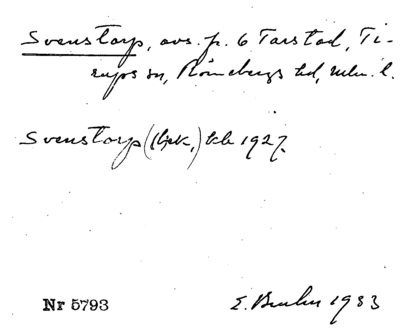 Svenstorp, avs. fr. 6 Tarstad, Ti-
rups sn, Rönnebergs hd, Mlm. l.
Svenstorp (Epk,) kb 1927.
Nr 5793 E. 1933